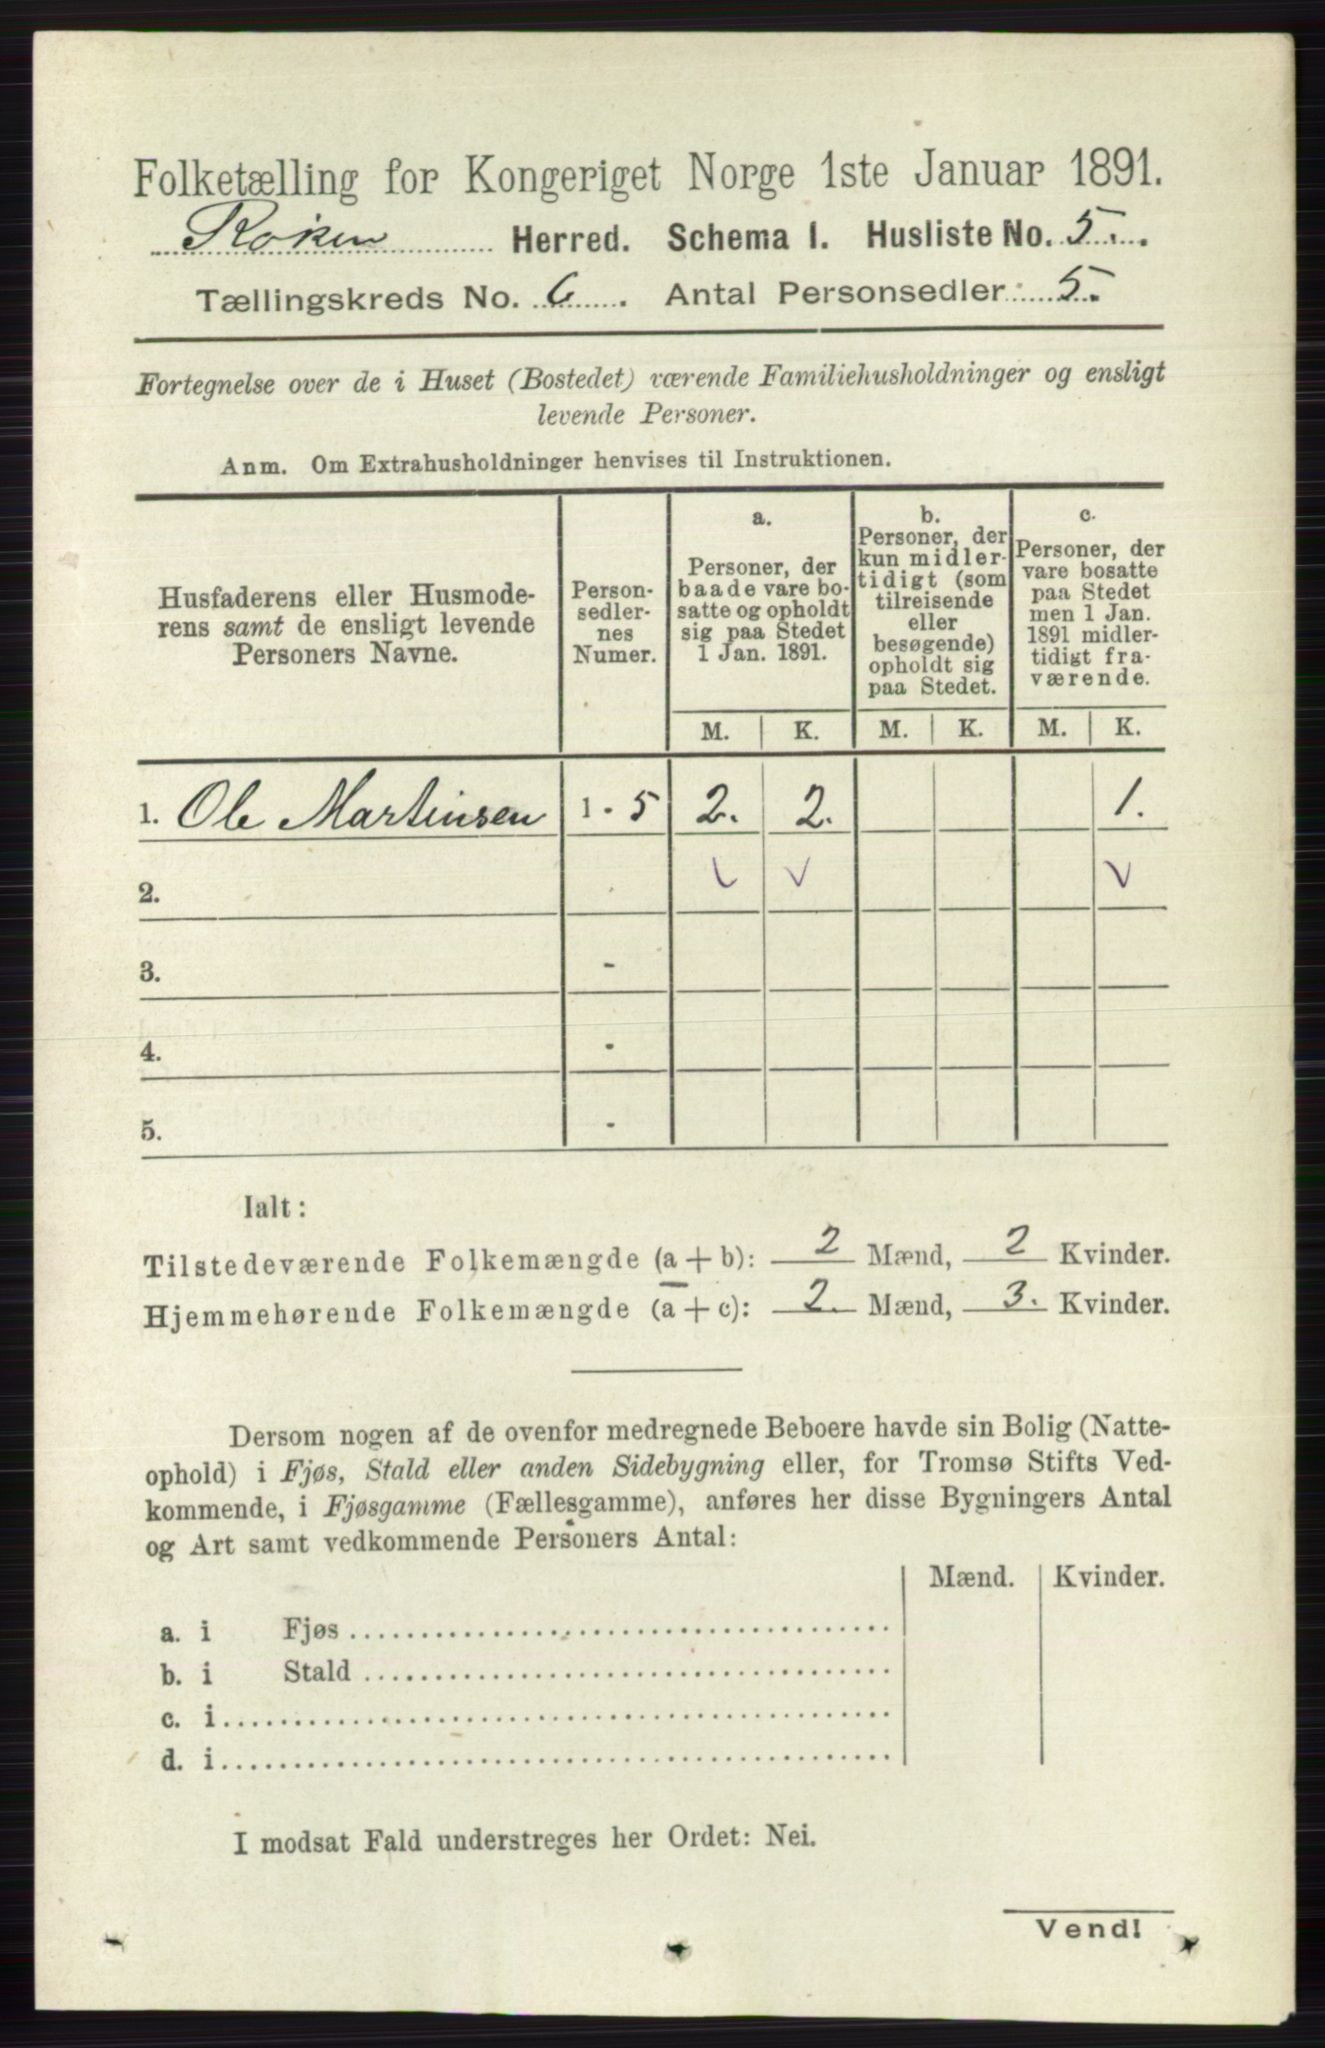 Folketælling for Kongeriget Norge 1ste Januar 1891.
Röken Herred. Schema I. Husliste No. 5.
Tællingskreds No. 6. Antal Personsedler 5.
Fortegnelse over de i Huset (Bostedet) værende Familiehusholdninger og ensligt
levende Personer.
Anm. Om Extrahusholdninger henvises til Instruktionen.
Husfaderens eller Husmode-
rens samt de ensligt levende
Personers Navne.
Person-
sedler-
nes
Numer.
a.
Personer, der
baade vare bo-
satte og opholdt
sig paa Stedet
1 Jan. 1891.
b.
Personer, der
kun midler-
tidigt (som
tilreisende
eller
besøgende)
opholdt sig
paa Stedet.
c.
Personer, der
vare bosatte
paa Stedet
men 1 Jan.
1891 midler-
tidigt fra-
værende.
M. K. M. K. M. K.
1. Ole Martinsen 1 - 5 2. 2. 1.
2.
3. -
4. -
5. -
Ialt:
Tilstedeværende Folkemængde (a + b): 2 Mænd, 2 Kvinder.
Hjemmehørende Folkemængde (a + c): 2. Mænd, 3. Kvinder.
Dersom nogen af de ovenfor medregnede Beboere havde sin Bolig (Natte-
ophold) i Fjøs, Stald eller anden Sidebygning eller, for Tromsø Stifts Ved-
kommende, i Fjøsgamme (Fællesgamme), anføres her disse Bygningers Antal
og Art samt vedkommende Personers Antal:
Mænd. Kvinder.
a. i Fjøs
b. i Stald
c. i
d. i
I modsat Fald understreges her Ordet: Nei.
Vend!